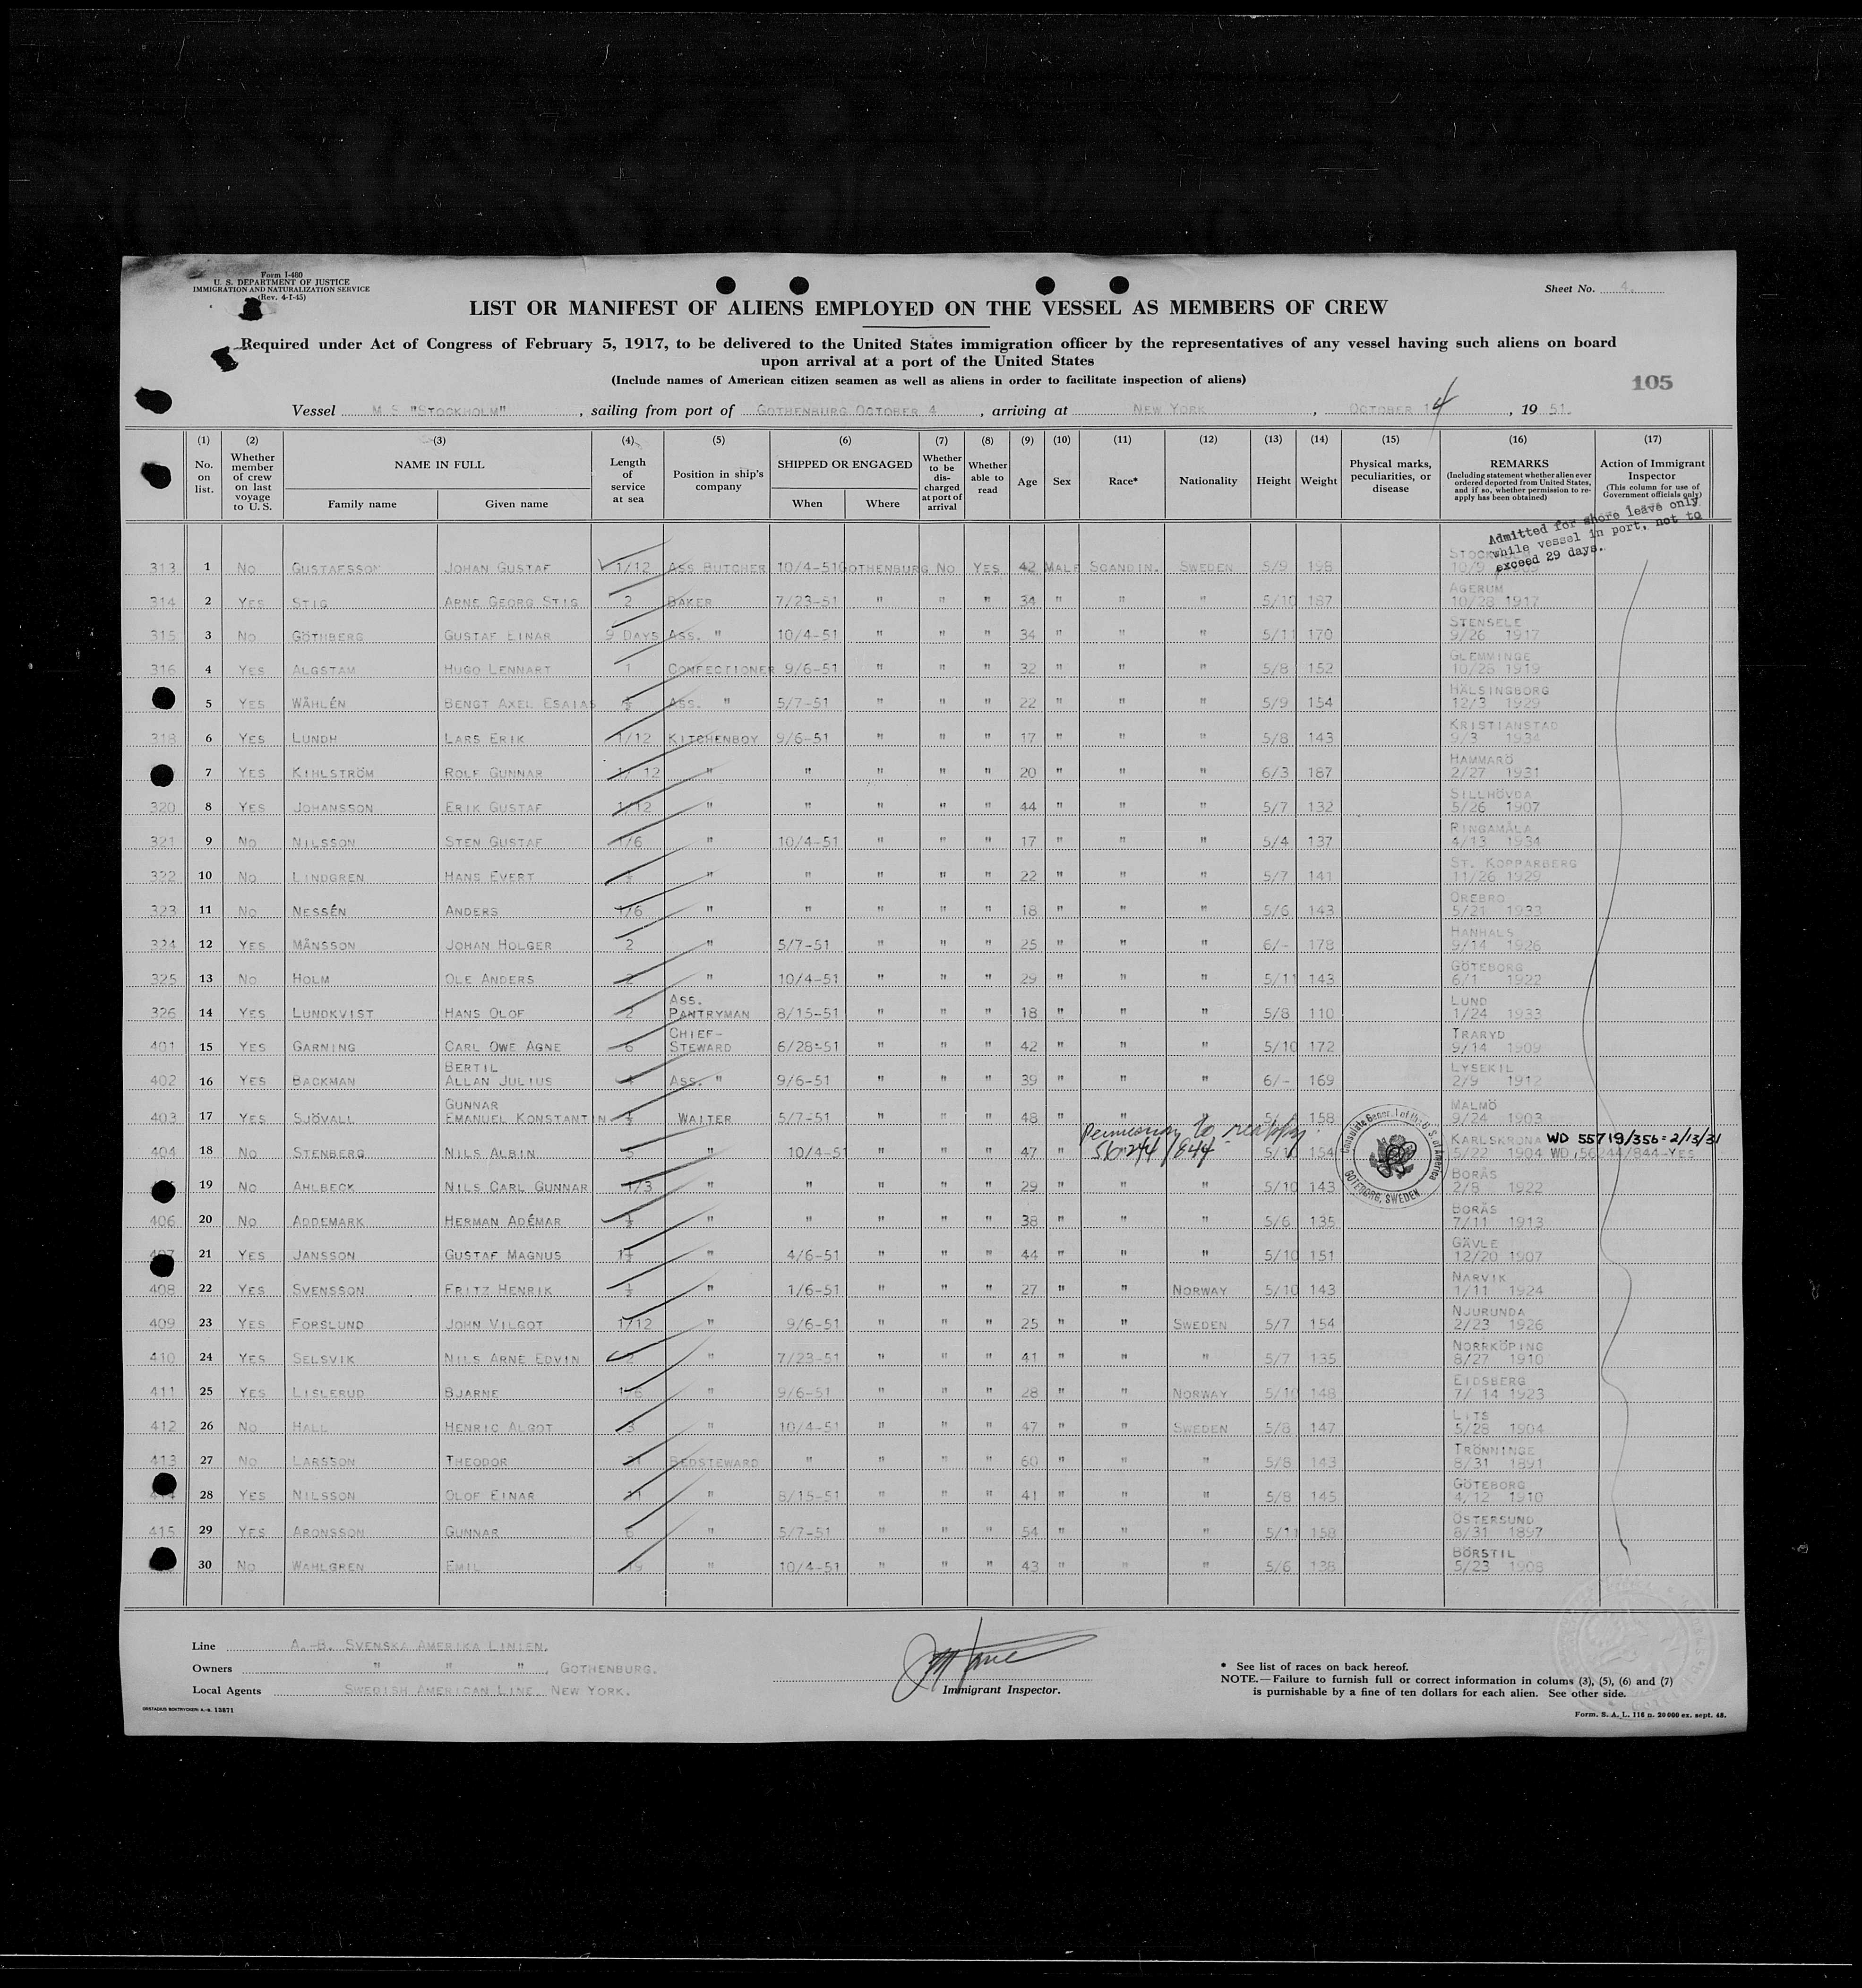 Form I-480
U. S. DEPARTMENT OF JUSTICE
IMMIGRATION AND NATURALIZATION SERVICE
(Rev. 4-1-45)
Sheet No. 4.
LIST OR MANIFEST OF ALIENS EMPLOYED ON THE VESSEL AS MEMBERS OF CREW
Required under Act of Congress of February 5, 1917, to be delivered to the United States immigration officer by the representatives of any vessel having such aliens on board
upon arrival at a port of the United States
(Include names of American citizen seamen as well as aliens in order to facilitate inspection of aliens)
105
Vessel M S "STOCKHOLM", sailing from port of GOTHENBURG OCTOBER 4, arriving at NEW YORK, OCTOBER 14, 19 51.
(1) (2) (3) (4) (5) (6) (7) (8) (9) (10) (11) (12) (13) (14) (15) (16) (17)
No. on list. Whether member of crew on last voyage to U. S. NAME IN FULL Family name Given name Length of service at sea Position in ship's company SHIPPED OR ENGAGED When Where Whether to be discharged at port of arrival Whether able to read Age Sex Race* Nationality Height Weight Physical marks, peculiarities, or disease REMARKS (Including statement whether alien ever ordered deported from United States, and if so, whether permission to re-apply has been obtained) Action of Immigrant Inspector (This column for use of Government officials only)
Admitted for shore leave only
while vessel in port, not to
exceed 29 days.
313 1 NO GUSTAFSSON JOHAN GUSTAF 1/12 ASS BUTCHER 10/4-51 GOTHENBURG NO YES 42 MALE SCANDIN. SWEDEN 5/9 198 STOCKHOLM 10/9
314 2 YES STIG ARNE GEORG STIG 2 BAKER 7/23-51 " " " 34 " " " 5/10 187 AGERUM 10/28 1917
315 3 NO GÖTHBERG GUSTAF EINAR 9 DAYS ASS. " 10/4-51 " " " 34 " " " 5/11 170 STENSELE 9/26 1917
316 4 YES ALGSTAM HUGO LENNART 1 CONFECTIONER 9/6-51 " " " 32 " " " 5/8 152 GLEMMINGE 10/26 1919
5 YES WÅHLÉN BENGT AXEL ESAIAS ½ ASS. " 5/7-51 " " " 22 " " " 5/9 154 HÄLSINGBORG 12/3 1929
318 6 YES LUNDH LARS ERIK 1/12 KITCHENBOY 9/6-51 " " " 17 " " " 5/8 143 KRISTIANSTAD 9/3 1934
7 YES KIHLSTRÖM ROLF GUNNAR 1/12 " " " " " 20 " " " 6/3 187 HAMMARÖ 2/27 1931
320 8 YES JOHANSSON ERIK GUSTAF 1/12 " " " " " 44 " " " 5/7 132 SILLHÖVDA 5/26 1907
321 9 NO NILSSON STEN GUSTAF 1/6 " 10/4-51 " " " 17 " " " 5/4 137 RINGAMÅLA 4/13 1934
322 10 NO LINDGREN HANS EVERT " " " " " 22 " " " 5/7 141 ST. KOPPARBERG 11/26 1929
323 11 NO NESSÉN ANDERS 1/6 " " " " " 18 " " " 5/6 143 ÖREBRO 5/21 1933
324 12 YES MÅNSSON JOHAN HOLGER 2 " 5/7-51 " " " 25 " " " 6/- 178 HANHALS 9/14 1926
325 13 NO HOLM OLE ANDERS 2 " 10/4-51 " " " 29 " " " 5/11 143 GÖTEBORG 6/1 1922
326 14 YES LUNDKVIST HANS OLOF 2 ASS. PANTRYMAN 8/15-51 " " " 18 " " " 5/8 110 LUND 1/24 1933
401 15 YES GARNING CARL OWE AGNE 6 CHIEF-STEWARD 6/28-51 " " " 42 " " " 5/10 172 TRARYD 9/14 1909
402 16 YES BACKMAN BERTIL ALLAN JULIUS 4 ASS. " 9/6-51 " " " 39 " " " 6/- 169 LYSEKIL 2/9 1912
403 17 YES SJÖVALL GUNNAR EMANUEL KONSTANTIN ½ WAITER 5/7-51 " " " 48 " " " 158 MALMÖ 9/24 1903
Permission to reapply
56244/844
404 18 NO STENBERG NILS ALBIN 5 " 10/4-51 " " " 47 " 5/10 154 KARLSKRONA 5/22 1904 WD 55719/356 = 2/13/31 WD,56244/844-YES
Consulate General of the U.S. of America
GÖTEBORG, SWEDEN
19 NO AHLBECK NILS CARL GUNNAR 1/3 " " " " " 29 " " " 5/10 143 BORÅS 2/8 1922
406 20 NO ADDEMARK HERMAN ADÉMAR ½ " " " " " 38 " " " 5/6 135 BORÅS 7/11 1913
407 21 YES JANSSON GUSTAF MAGNUS 1½ " 4/6-51 " " " 44 " " " 5/10 151 GÄVLE 12/20 1907
408 22 YES SVENSSON FRITZ HENRIK ½ " 1/6-51 " " " 27 " " NORWAY 5/10 143 NARVIK 1/11 1924
409 23 YES FORSLUND JOHN VILGOT 1/12 " 9/6-51 " " " 25 " " SWEDEN 5/7 154 NJURUNDA 2/23 1926
410 24 YES SELSVIK NILS ARNE EDVIN 2 " 7/23-51 " " " 41 " " " 5/7 135 NORRKÖPING 8/27 1910
411 25 YES LISLERUD BJARNE 1/6 " 9/6-51 " " " 28 " " NORWAY 5/10 148 EIDSBERG 7/14 1923
412 26 NO HALL HENRIC ALGOT 3 " 10/4-51 " " " 47 " " SWEDEN 5/8 147 LITS 5/28 1904
413 27 NO LARSSON THEODOR 21 BEDSTEWARD " " " " 60 " " " 5/8 143 TRÖNNINGE 8/31 1891
414 28 YES NILSSON OLOF EINAR 11 " 8/15-51 " " " 41 " " " 5/8 145 GÖTEBORG 4/12 1910
415 29 YES ARONSSON GUNNAR 6 " 5/7-51 " " " 54 " " " 5/11 158 ÖSTERSUND 8/31 1897
30 NO WAHLGREN EMIL 19 " 10/4-51 " " " 43 " " " 5/6 138 BÖRSTIL 5/23 1908
Line A.-B. SVENSKA AMERIKA LINIEN.
Owners " " " , GOTHENBURG.
Local Agents SWEDISH AMERICAN LINE NEW YORK.
Immigrant Inspector.
* See list of races on back hereof.
NOTE.—Failure to furnish full or correct information in colums (3), (5), (6) and (7)
is punishable by a fine of ten dollars for each alien. See other side.
ORSTADIUS BOKTRYCKERI A.-B. 13871
Form. S. A. L. 116 n. 20 000 ex. sept. 48.